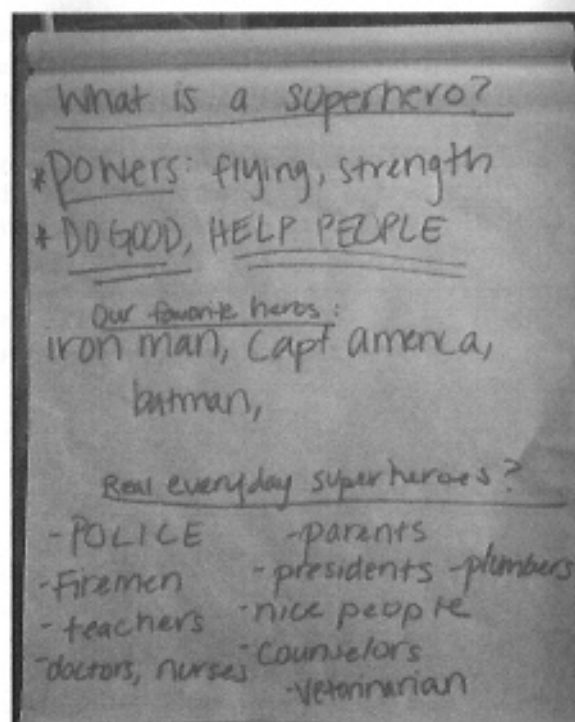 What is a superhero?
*Powers: flying, strength
*DO GOOD, HELP PEOPLE
Our favorite heros:
iron man, Capt america,
batman,
Real everyday superheroes?
-POLICE
-Firemen
-teachers
-doctors, nurses
-parents
-presidents -plumbers
-nice people
-Counselors
-Vetarinarian